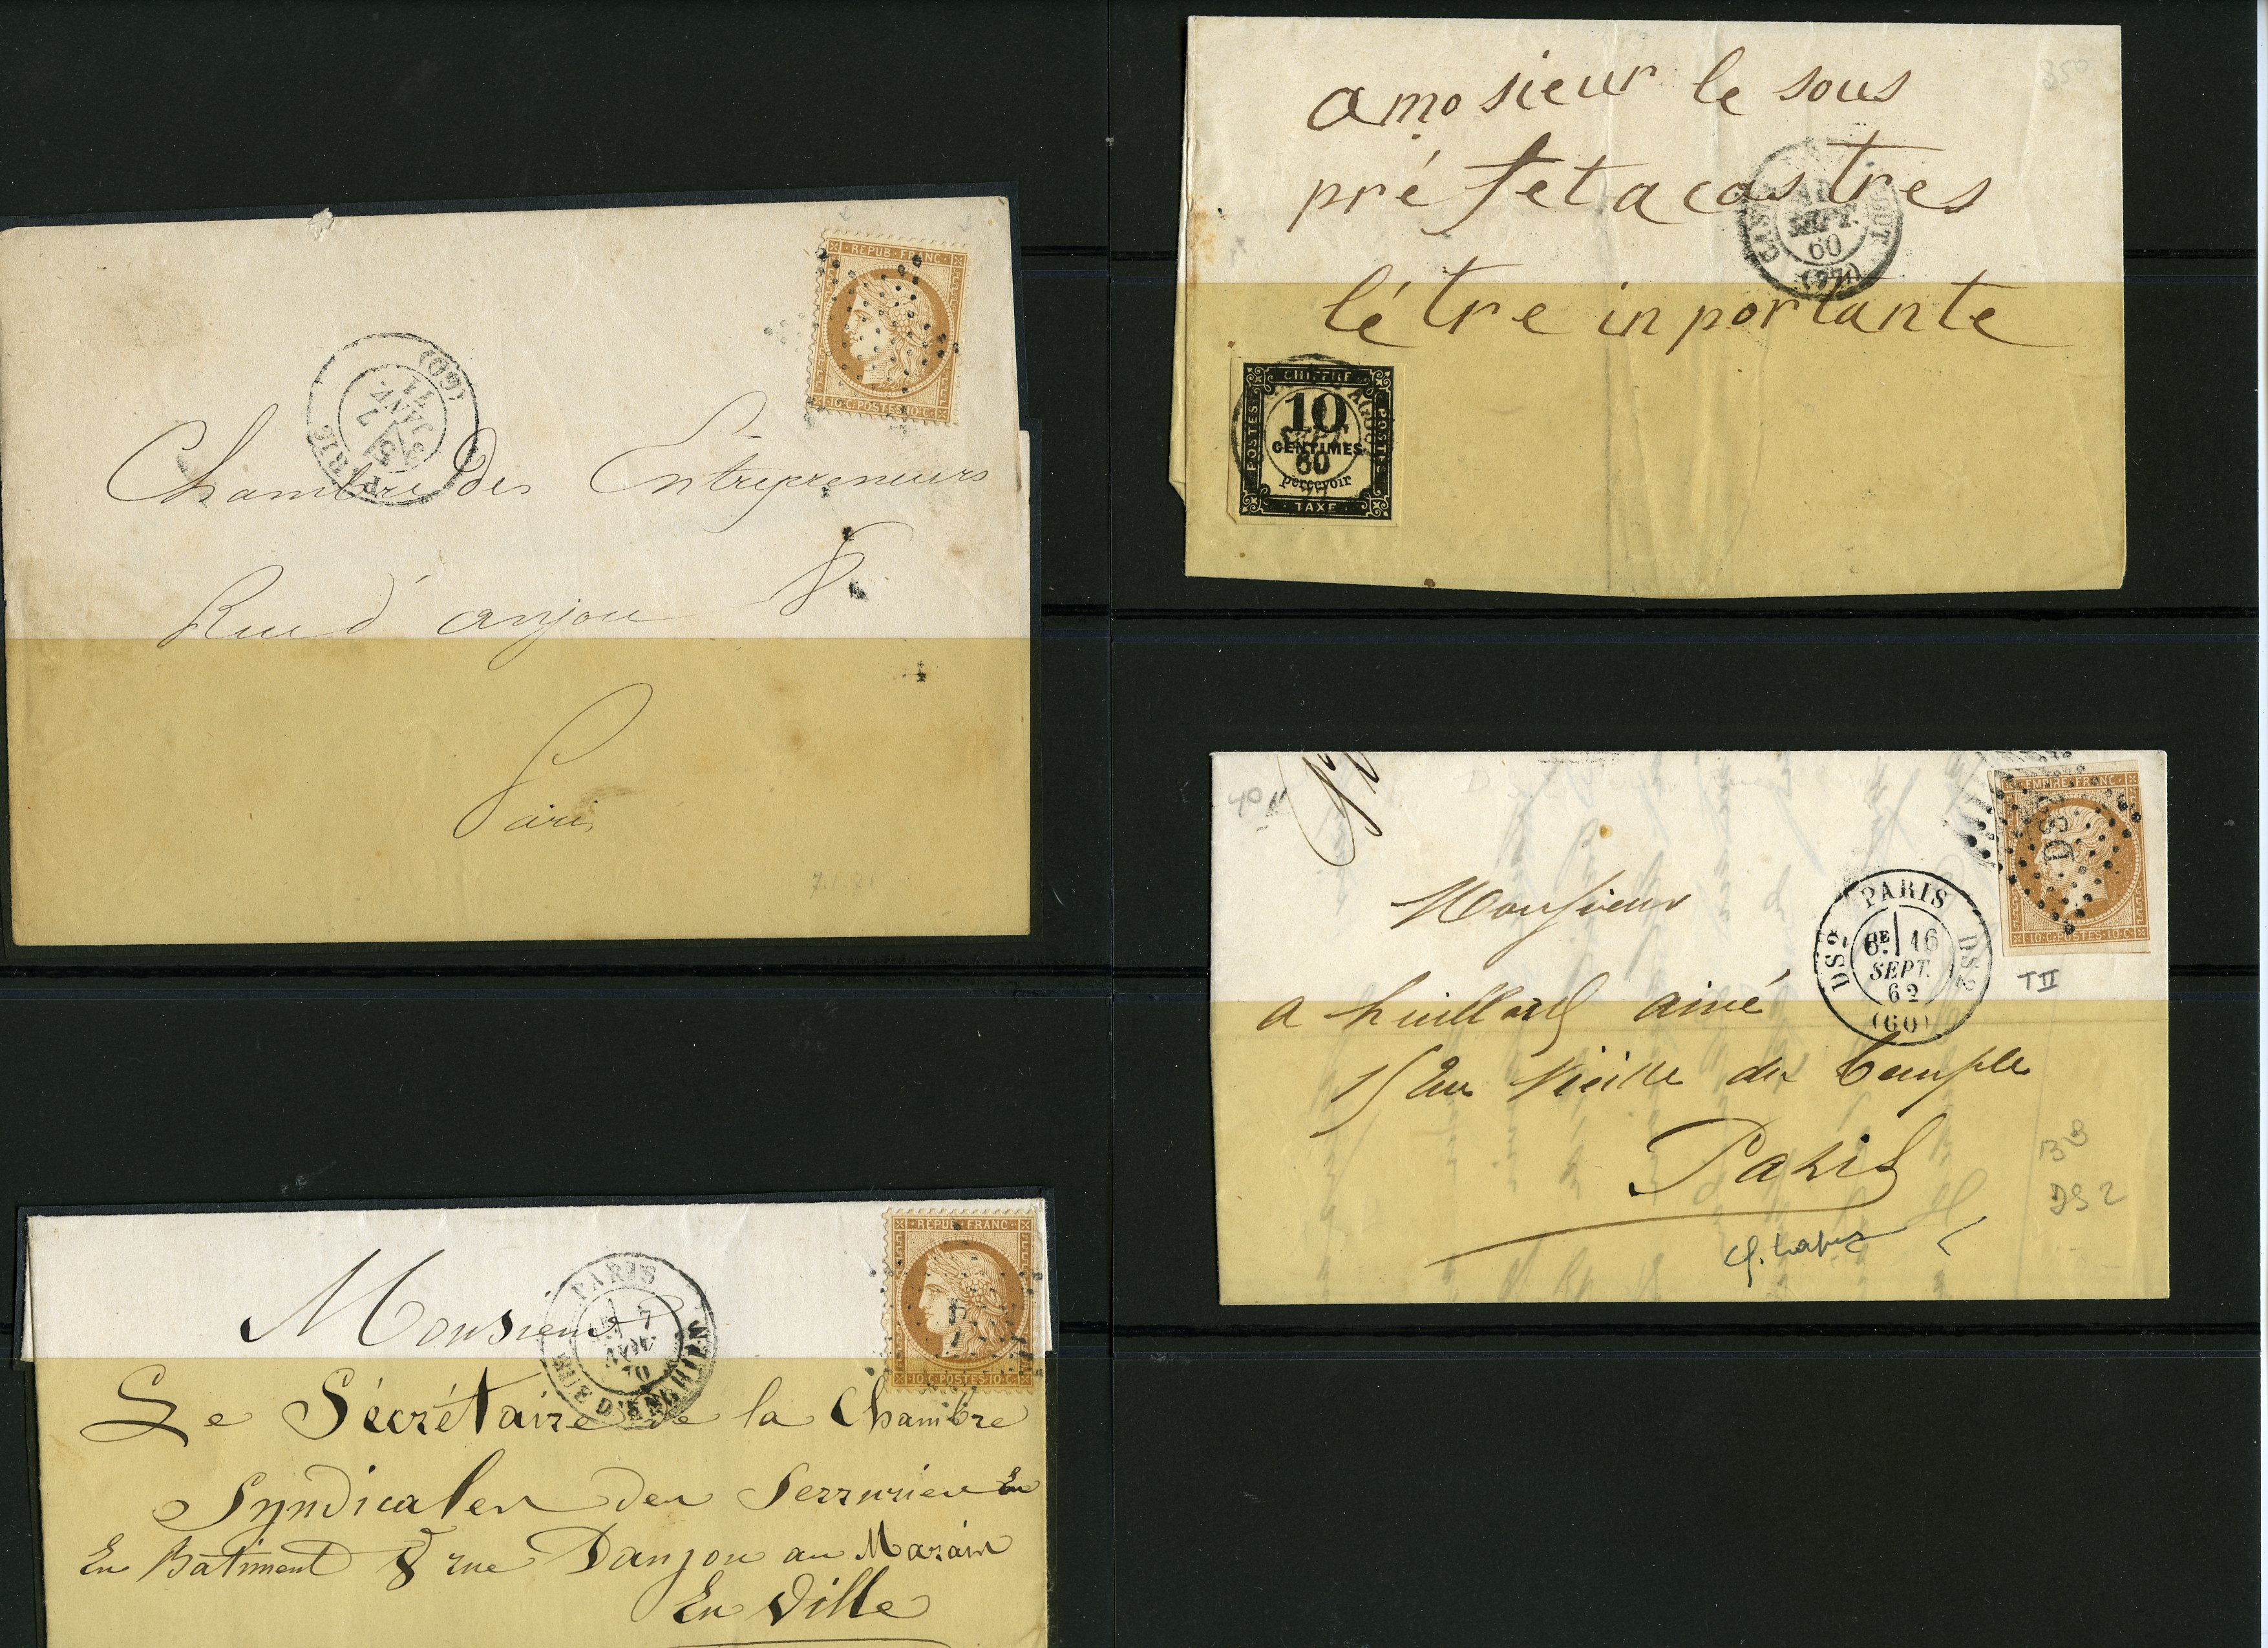 REPUB · FRANC
10 C · POSTES · 10 C
PARIS
5
7
JANV.
71
(60)
Chambre des Entrepreneurs
Rue d'anjou 8
Paris
7.1.71
REPUB · FRANC
10 C · POSTES · 10 C
PARIS
7
NOV.
70
RUE D'ENGHIEN
Monsieur
Le Sécrétaire de la Chambre
Syndicales des Serruriers En
En Bâtiment 8 rue Danjou au Marais
En Ville
850
amosieur le sous
préfet a castres
60
(77)
létre inportante
CHIFFRE
POSTES
POSTES
10
CENTIMES
SEPT.
60
percevoir
TAXE
EMPIRE FRANC
10 C · POSTES · 10 C
DS2
PARIS
DS2 DS2
6E 16
SEPT.
62
(60)
TII
Monsieur
a huillard ainé
15 Rue Vieille du temple
Paris
DS 2